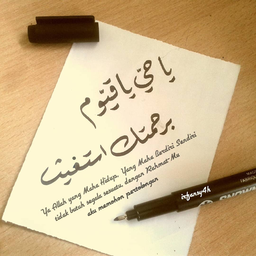 يا حي يا قيوم
برحمتك استغيث
Ya Allah yang Maha Hidup, Yang Maha Berdiri Sendiri
tidak butuh segala sesuatu, dengan Rahmat Mu
aku memohon pertolongan